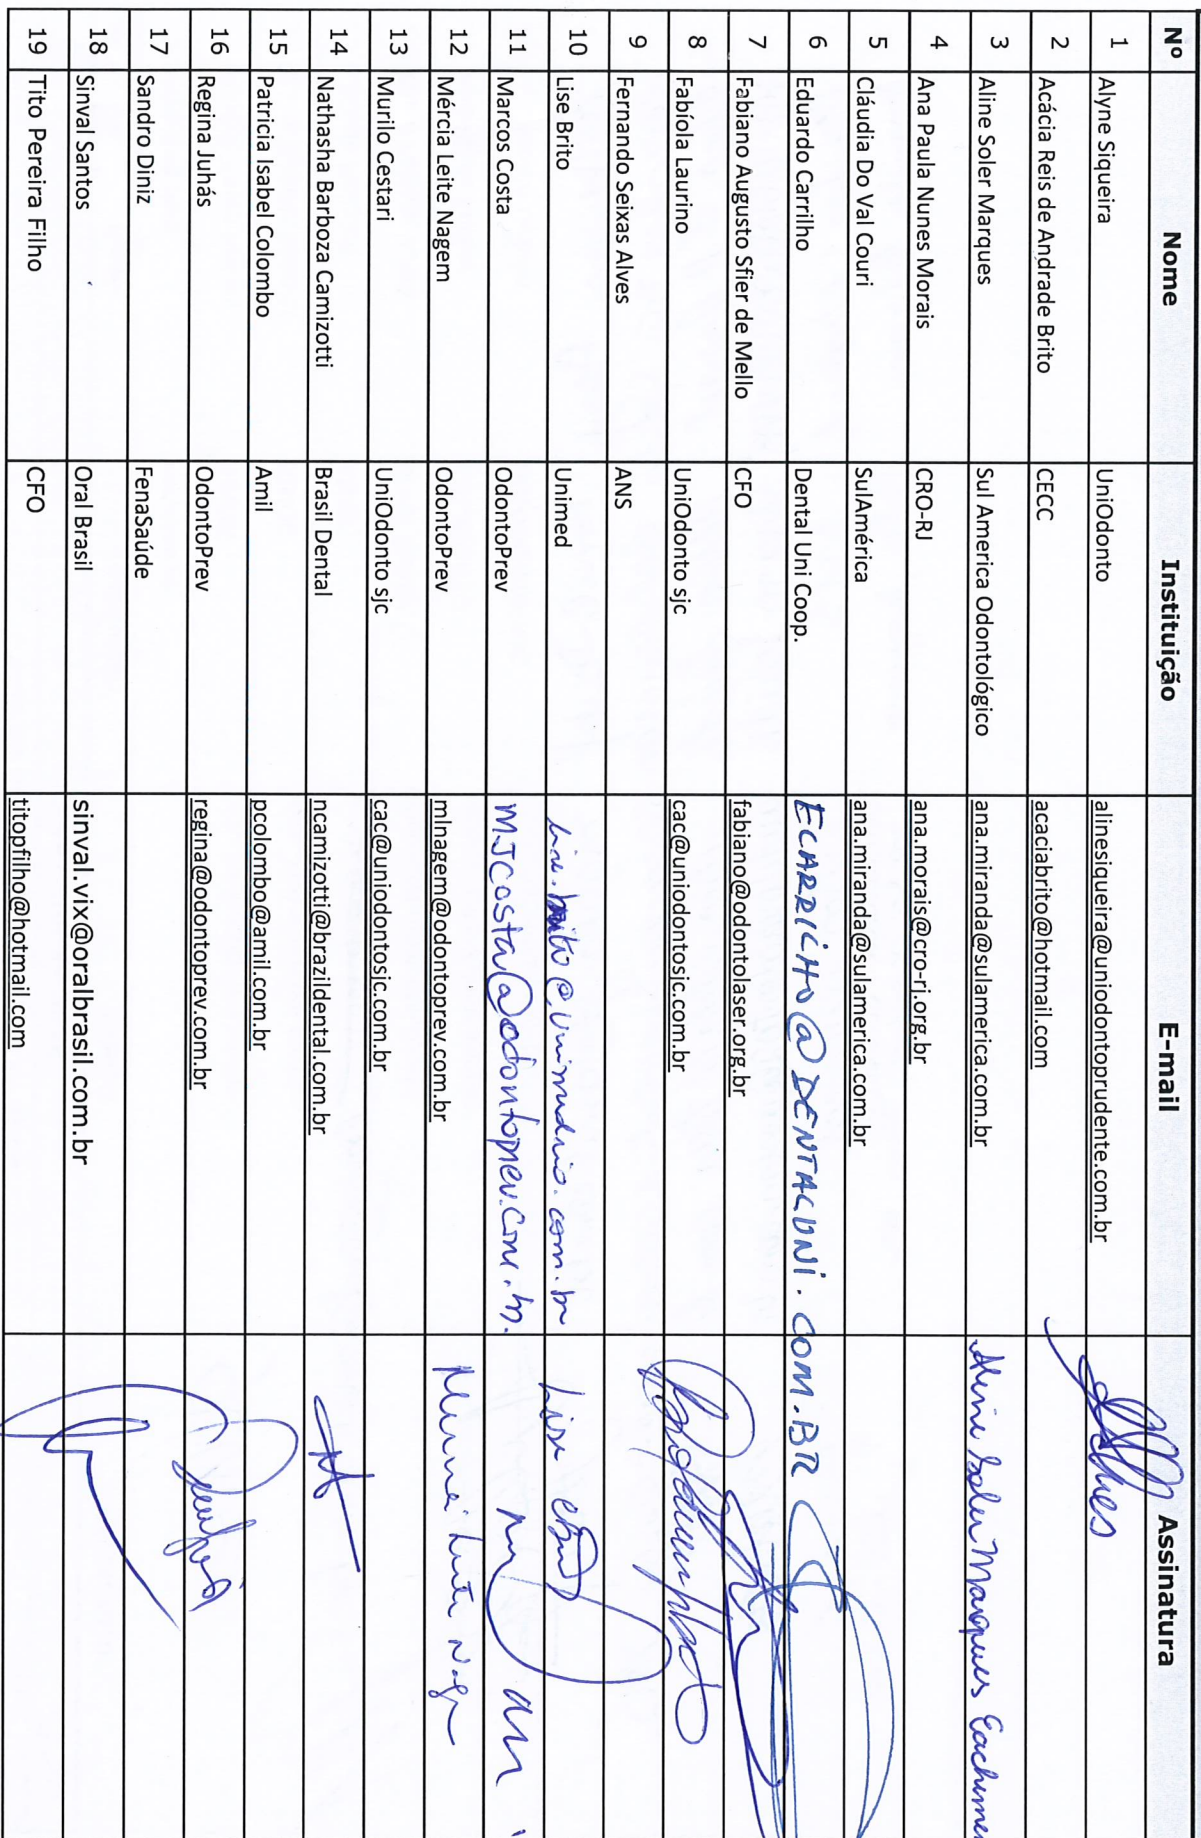 Nº Nome Instituição E-mail Assinatura
1 Alyne Siqueira UniOdonto alinesiqueira@uniodontoprudente.com.br
2 Acácia Reis de Andrade Brito CECC acaciabrito@hotmail.com
3 Aline Soler Marques Sul America Odontológico ana.miranda@sulamerica.com.br Aline Soler Marques
4 Ana Paula Nunes Morais CRO-RJ ana.morais@cro-rj.org.br
5 Cláudia Do Val Couri SulAmérica ana.miranda@sulamerica.com.br
6 Eduardo Carrilho Dental Uni Coop. ECARRILHO@DENTALUNI.COM.BR
7 Fabiano Augusto Sfier de Mello CFO fabiano@odontolaser.org.br
8 Fabíola Laurino UniOdonto sjc cac@uniodontosjc.com.br
9 Fernando Seixas Alves ANS
10 Lise Brito Unimed lise.brito@unimedrio.com.br Lise
11 Marcos Costa OdontoPrev MJCosta@odontoprev.com.br.
12 Mércia Leite Nagem OdontoPrev mlnagem@odontoprev.com.br
13 Murilo Cestari UniOdonto sjc cac@uniodontosjc.com.br
14 Nathasha Barboza Camizotti Brasil Dental ncamizotti@brazildental.com.br
15 Patricia Isabel Colombo Amil pcolombo@amil.com.br
16 Regina Juhás OdontoPrev regina@odontoprev.com.br
17 Sandro Diniz FenaSaúde
18 Sinval Santos Oral Brasil sinval.vix@oralbrasil.com.br
19 Tito Pereira Filho CFO titopfilho@hotmail.com